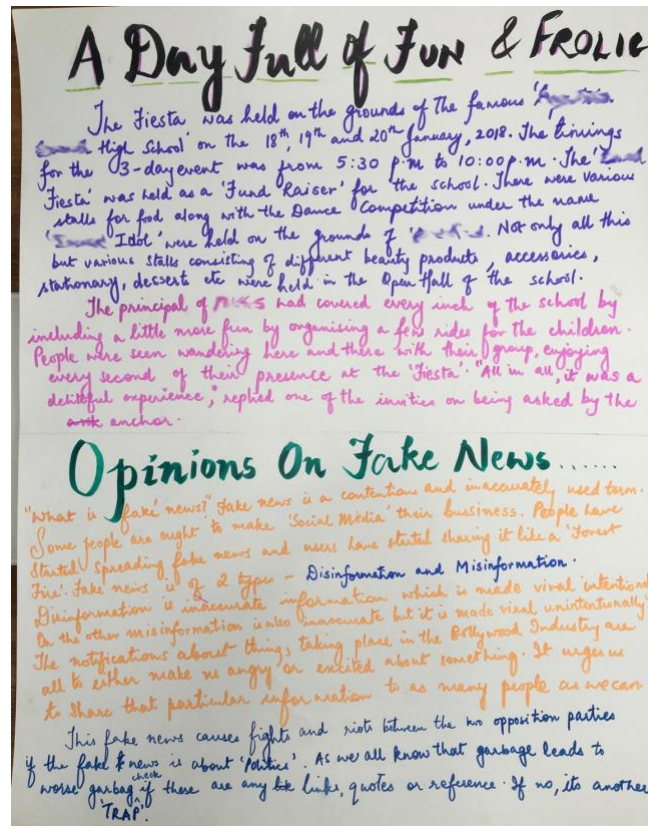 A Day Full of FUN & FROLIC
The Fiesta was held on the grounds of The famous
High School' on the 18th, 19th and 20th January, 2018. The timings
for the 3-day event was from 5:30 p.m to 10:00 p.m. The
Fiesta' was held as a 'Fund Raiser' for the school. There were various
stalls for food along with the Dance Competition under the name
Idol' were held on the grounds of . Not only all this
but various stalls consisting of different beauty products, accessories,
stationary, desserts etc were held in the Open Hall of the school.
The principal of had covered every inch of the school by
including a little more fun by organising a few rides for the children.
People were seen wandering here and there with their group, enjoying
every second of their presence at the 'Fiesta'. "All in all, it was a
delitful experience," replied one of the invities on being asked by the
anchor.
Opinions On Fake News......
"What is 'fake' news?" Fake news is a contentious and inaccurately used term.
Some people are ought to make 'Social Media' their bussiness. People have
started spreading fake news and users have started sharing it like a 'Forest
Fire'. Fake news is of 2 types - Disinformation and Misinformation.
Disinformation is inaccurate information which is made viral intentional
On the other misinformation is also inaccurate but it is made viral unintentionally
The notifications about things taking place in the Bollywood Industry are
all to either make us angry or excited about something. It urges us
to share that particular information to as many people as we can
This fake news causes fights and riots between the two opposition parties
if the fake news is about 'Politics'. As we all know that garbage leads to
worse garbag check if there are any links, quotes or reference. If no, its another
'TRAP'.